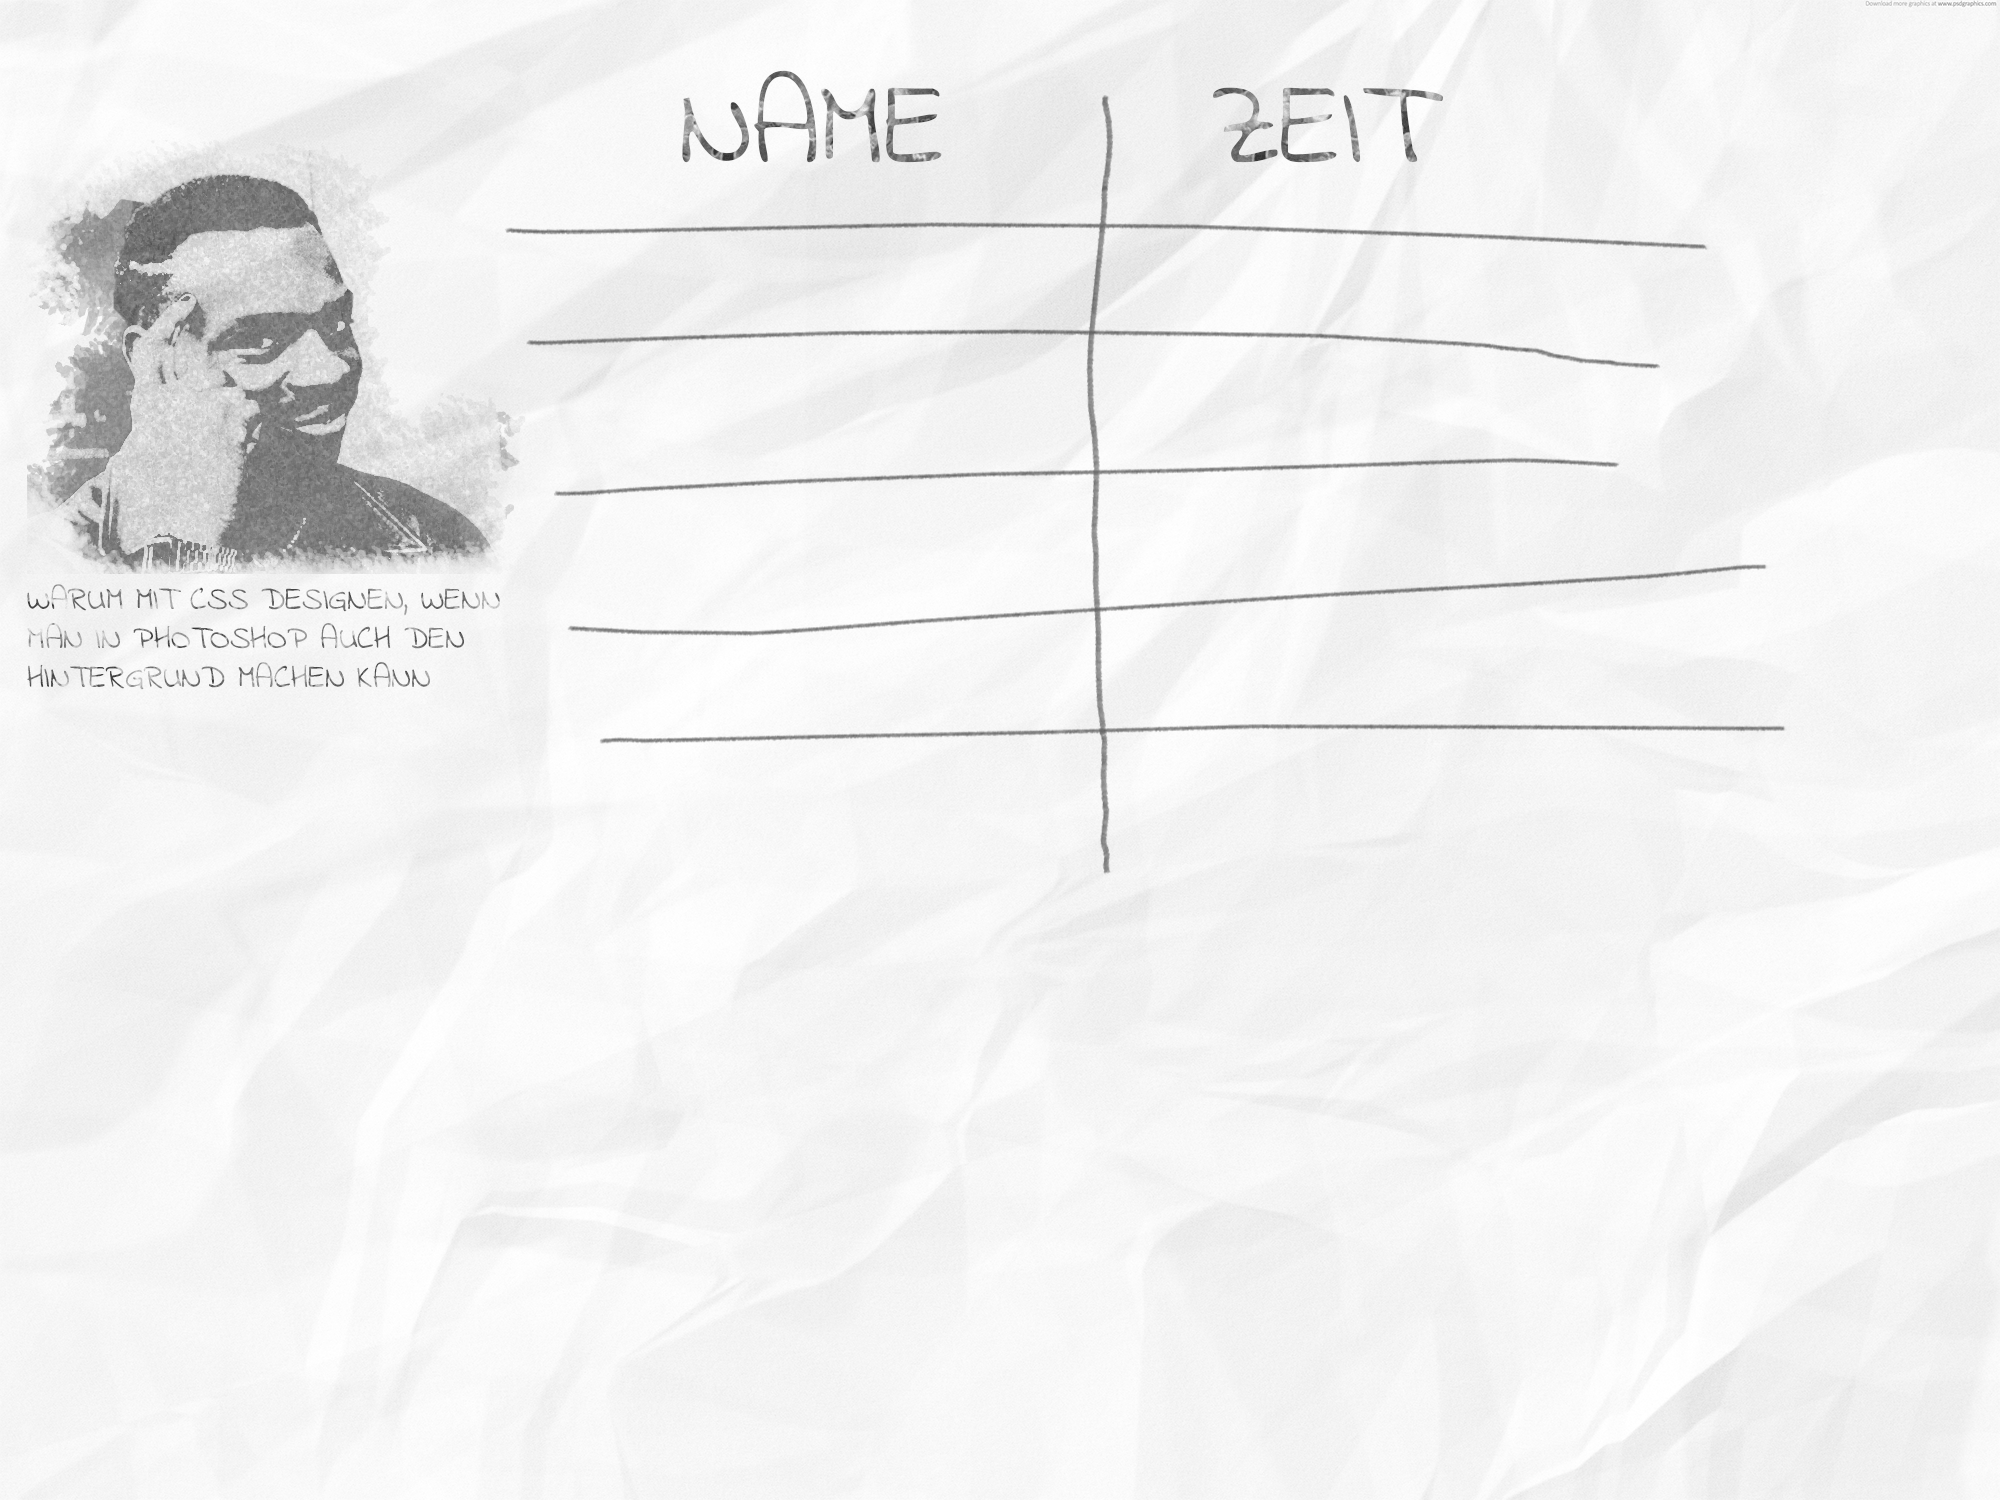 Download more graphics at www.psdgraphics.com
NAME ZEIT
WARUM MIT CSS DESIGNEN, WENN
MAN IN PHOTOSHOP AUCH DEN
HINTERGRUND MACHEN KANN